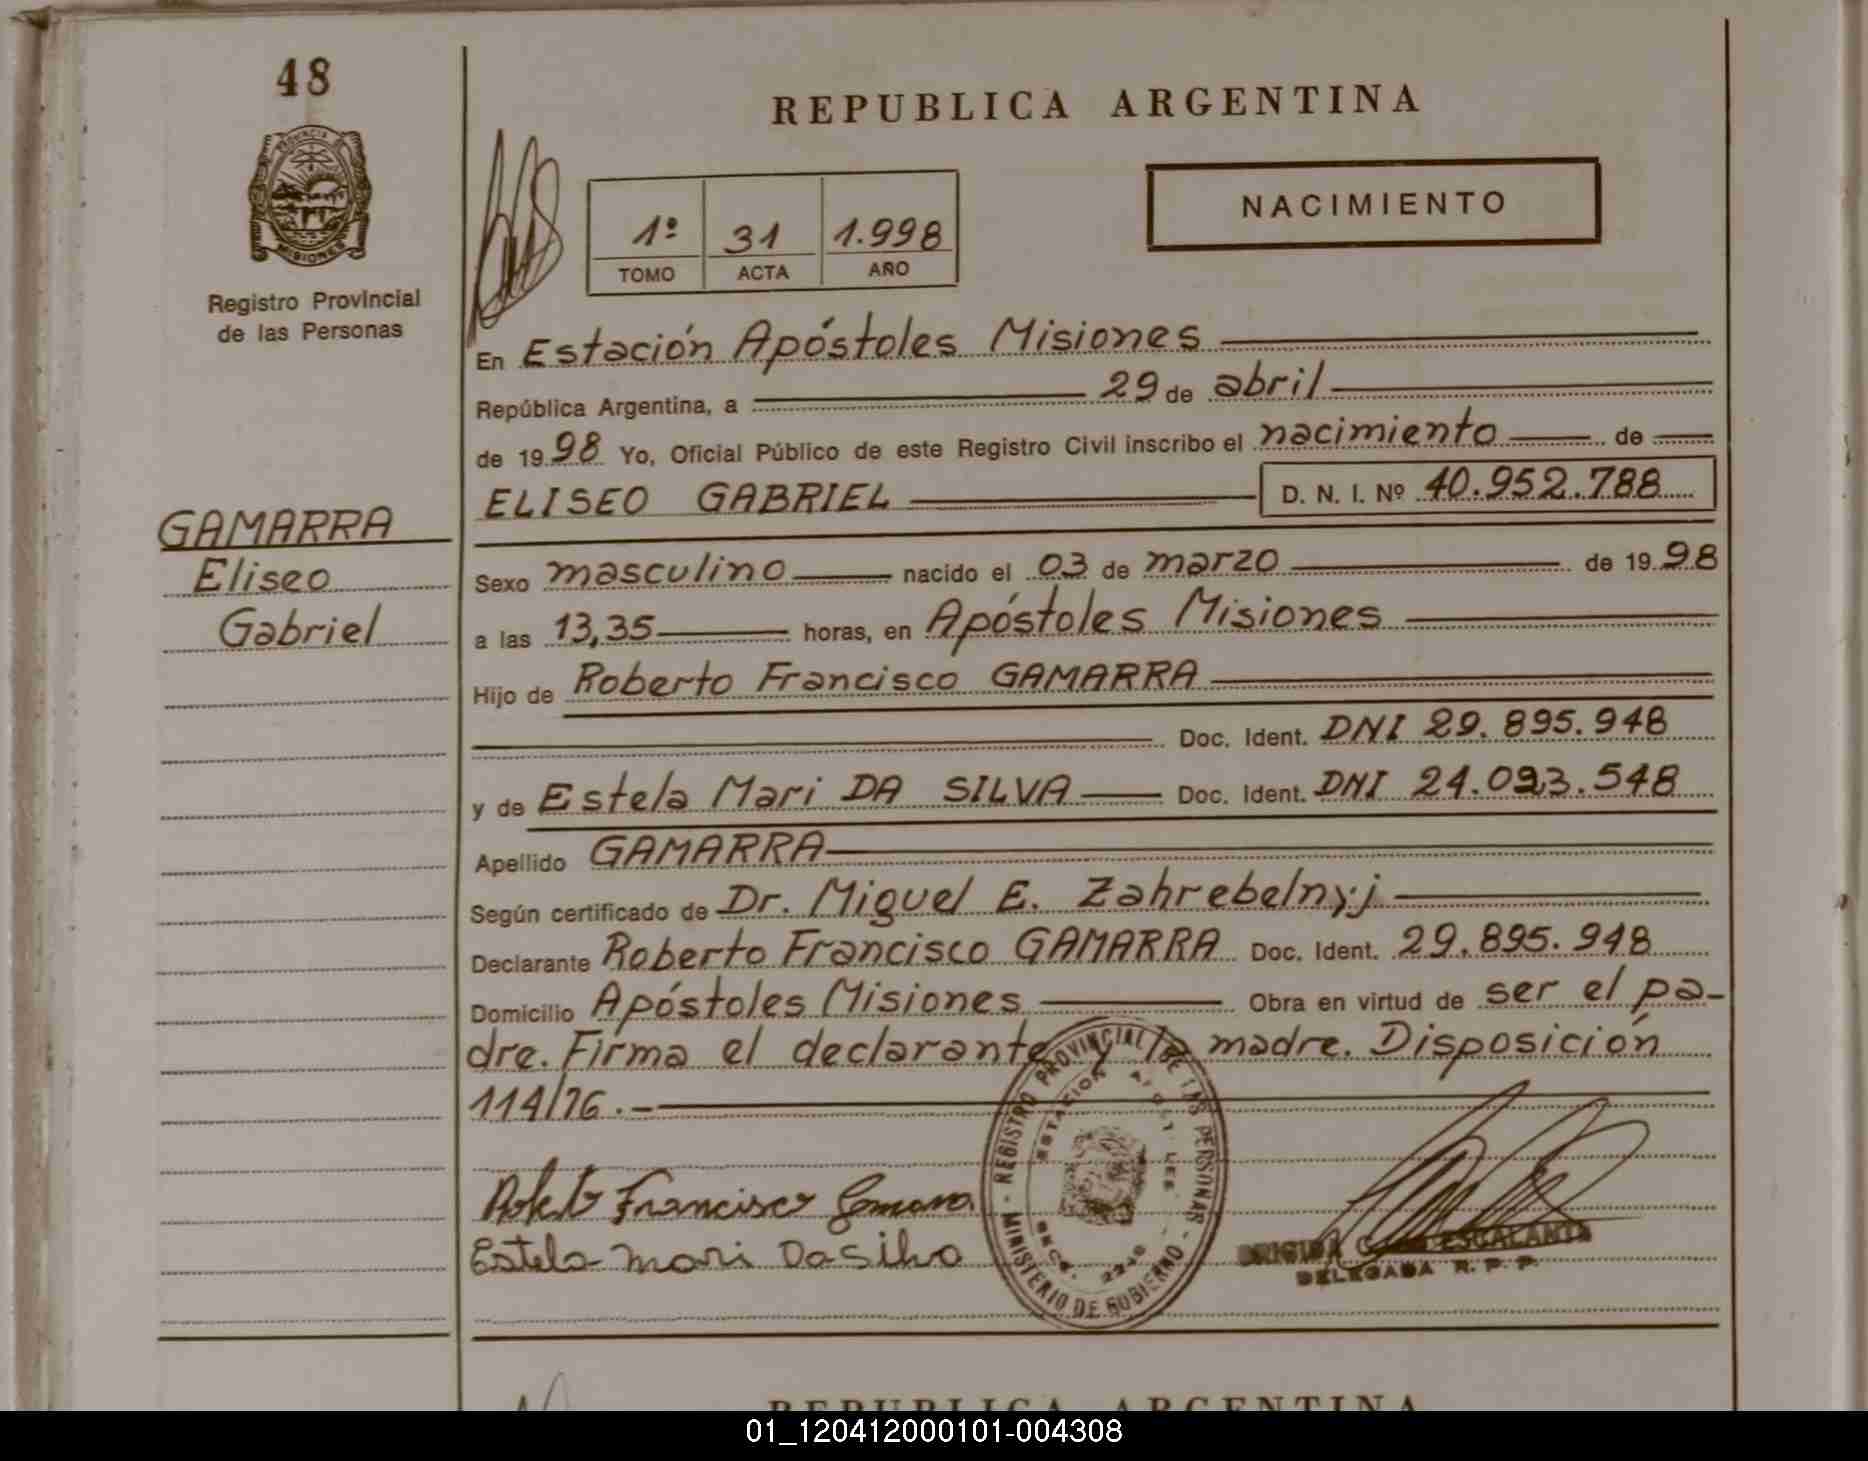 48
PROVINCIA
MISIONES
Registro Provincial
de las Personas
REPUBLICA ARGENTINA
NACIMIENTO
1º 31 1.998
TOMO ACTA AÑO
En Estación Apóstoles Misiones
República Argentina, a 29 de abril
de 1998 Yo, Oficial Público de este Registro Civil inscribo el nacimiento de
ELISEO GABRIEL D. N. I. Nº 40.952.788
GAMARRA
Eliseo
Gabriel
Sexo masculino nacido el 03 de marzo de 1998
a las 13,35 horas, en Apóstoles Misiones
Hijo de Roberto Francisco GAMARRA
Doc. Ident. DNI 29.895.948
y de Estela Mari DA SILVA Doc. Ident. DNI 24.093.548
Apellido GAMARRA
Según certificado de Dr. Miguel E. Zahrebelnyj
Declarante Roberto Francisco GAMARRA Doc. Ident. 29.895.948
Domicilio Apóstoles Misiones Obra en virtud de ser el pa-
dre. Firma el declarante y la madre. Disposición
114/76.-
Roberto Francisco Gamarra
Estela Mari Da Silva
REGISTRO PROVINCIAL DE LAS PERSONAS - MINISTERIO DE GOBIERNO -
ESTACION APOSTOLES
ESCALANTE
DELEGADA R. P. P.
REPUBLICA ARGENTINA
01_120412000101-004308